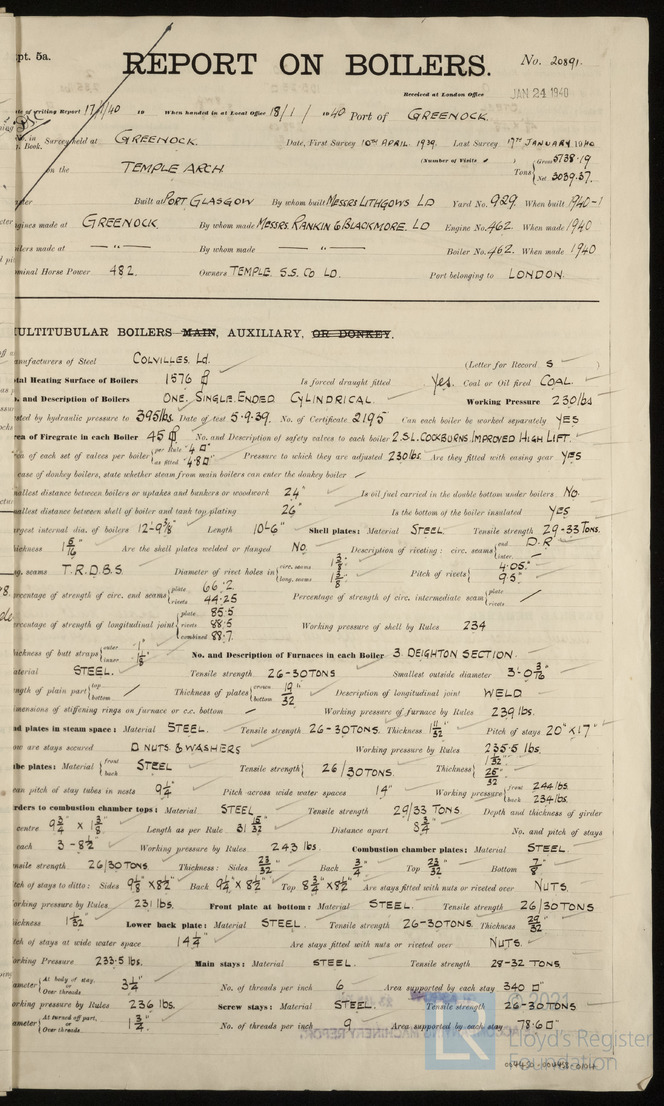 pt. 5a.
REPORT ON BOILERS.
No. 20891.
Received at London Office
JAN 24 1940
te of writing Report 17/1/40 19 When handed in at Local Office 18/1/ 1940 Port of GREENOCK.
o. in Survey held at GREENOCK. Date, First Survey 10TH APRIL. 1939. Last Survey 17TH JANUARY. 1940
g. Book.
(Number of Visits
on the TEMPLE ARCH. Tons { Gross 5738.19
Net 3039.37.
Built at PORT GLASGOW By whom built MESSRS LITHGOWS LD Yard No. 929. When built 1940-1
gines made at GREENOCK. By whom made MESSRS. RANKIN & BLACKMORE. LD Engine No. 462. When made 1940
ilers made at — " — By whom made — " — Boiler No. 462. When made 1940
minal Horse Power 482. Owners TEMPLE. S.S. CO LD. Port belonging to LONDON.
ULTITUBULAR BOILERS MAIN, AUXILIARY, OR DONKEY.
anufacturers of Steel COLVILLES. Ld. (Letter for Record S
otal Heating Surface of Boilers 1576 Is forced draught fitted Yes. Coal or Oil fired COAL.
o. and Description of Boilers ONE. SINGLE. ENDED. CYLINDRICAL. Working Pressure 230 lbs
sted by hydraulic pressure to 395 lbs. Date of test 5.9.39. No. of Certificate 2195 Can each boiler be worked separately YES
rea of Firegrate in each Boiler 45 No. and Description of safety valves to each boiler 2. S.L. COCKBURNS IMPROVED HIGH LIFT.
ea of each set of valves per boiler { per Rule 4 □"
as fitted 4.8 □" Pressure to which they are adjusted 230 lbs. Are they fitted with easing gear YES
case of donkey boilers, state whether steam from main boilers can enter the donkey boiler
mallest distance between boilers or uptakes and bunkers or woodwork 24" Is oil fuel carried in the double bottom under boilers. No.
mallest distance between shell of boiler and tank top plating 26" Is the bottom of the boiler insulated YES
argest internal dia. of boilers 12'-9 3/8" Length 10'-6" Shell plates: Material STEEL. Tensile strength 29-33 TONS.
hickness 1 5/16" Are the shell plates welded or flanged NO. Description of riveting: circ. seams { end D.R
inter.
ng. seams T.R.D.B.S. Diameter of rivet holes in { circ. seams 1 3/8"
long. seams 1 3/8" Pitch of rivets { 4.05"
9.5"
rcentage of strength of circ. end seams { plate 66.2
rivets 44.25 Percentage of strength of circ. intermediate seam { plate
rivets
rcentage of strength of longitudinal joint { plate 85.5
rivets 88.5
combined 88.7 Working pressure of shell by Rules 234
hickness of butt straps { outer 1"
inner 1 1/8" No. and Description of Furnaces in each Boiler 3 DEIGHTON SECTION.
aterial STEEL. Tensile strength 26-30 TONS Smallest outside diameter 3'-0 3/16"
ngth of plain part { top
bottom Thickness of plates { crown 19
bottom 32 " Description of longitudinal joint WELD.
imensions of stiffening rings on furnace or c.c. bottom Working pressure of furnace by Rules 239 lbs.
nd plates in steam space: Material STEEL. Tensile strength 26-30 TONS. Thickness 1 11/32" Pitch of stays 20" x 17"
ow are stays secured D NUTS & WASHERS Working pressure by Rules 235.5 lbs.
ube plates: Material { front
back STEEL Tensile strength { 26/30 TONS. Thickness { 1 1/32"
25/32"
ean pitch of stay tubes in nests 9 1/4" Pitch across wide water spaces 14" Working pressure { front 244 lbs.
back 234 lbs.
rders to combustion chamber tops: Material STEEL Tensile strength 29/33 TONS. Depth and thickness of girder
centre 9 3/4" x 1 3/8" Length as per Rule 31 15/32" Distance apart 8 3/4" No. and pitch of stays
each 3 - 8 1/2" Working pressure by Rules 243 lbs. Combustion chamber plates: Material STEEL.
nsile strength 26/30 TONS. Thickness: Sides 23/32" Back 3/4" Top 23/32" Bottom 7/8"
tch of stays to ditto: Sides 9 1/8" x 8 1/2" Back 9 1/4" x 8 1/2" Top 8 3/4" x 8 1/2" Are stays fitted with nuts or riveted over NUTS.
orking pressure by Rules 231 lbs. Front plate at bottom: Material STEEL. Tensile strength 26/30 TONS
ickness 1 1/32" Lower back plate: Material STEEL. Tensile strength 26-30 TONS. Thickness 29/32"
tch of stays at wide water space 14 1/4" Are stays fitted with nuts or riveted over NUTS.
orking Pressure 233.5 lbs. Main stays: Material STEEL. Tensile strength 28-32 TONS
ameter { At body of stay, or Over threads 3 1/4" No. of threads per inch 6 Area supported by each stay 340 □"
orking pressure by Rules 236 lbs. Screw stays: Material STEEL. Tensile strength 26-30 TONS
ameter { At turned off part, or Over threads 1 3/4" No. of threads per inch 9 Area supported by each stay 78.6 □"
© 2021
LR
Lloyd's Register
Foundation